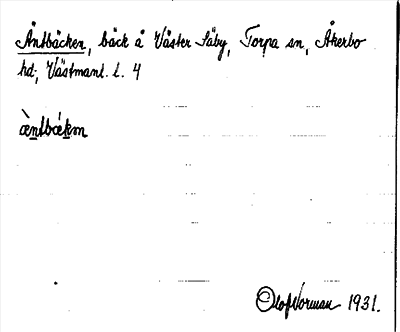 Äntbäcken, bäck å Väster Säby, Torpa sn, Åkerbo
hd., Västmanl. l. 4
æ̀ntbæ̀km
Olof Norman 1931.